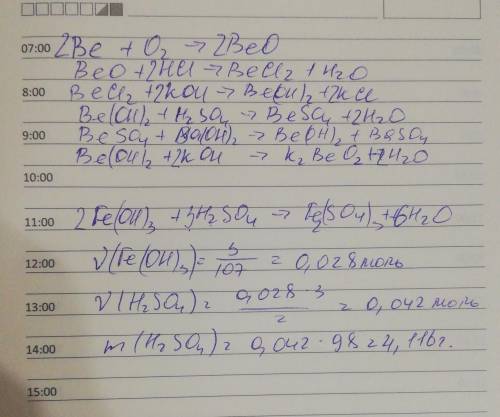 07:00 2Be + O₂ → 2BeO
BeO + 2HCl → BeCl₂ + H₂O
8:00 BeCl₂ + 2KOH → Be(OH)₂ + 2KCl
Be(OH)₂ + H₂SO₄ → BeSO₄ + 2H₂O
9:00 BeSO₄ + Ba(OH)₂ → Be(OH)₂ + BaSO₄
Be(OH)₂ + 2KOH → K₂BeO₂ + 2H₂O
10:00
11:00 2Fe(OH)₃ + 3H₂SO₄ → Fe₂(SO₄)₃ + 6H₂O
12:00 ν(Fe(OH)₃) = 3/107 = 0,028 моль
13:00 ν(H₂SO₄) = 0,028 · 3/2 = 0,042 моль
14:00 m(H₂SO₄) = 0,042 · 98 = 4,116 г.
15:00